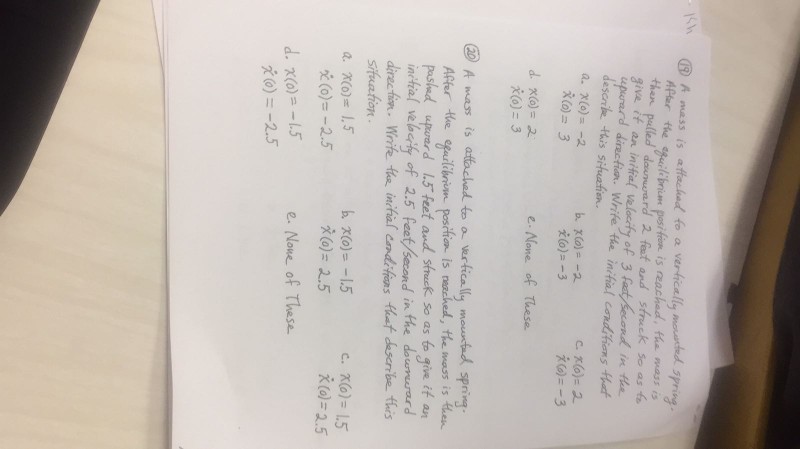 Kh
(19) A mass is attached to a vertically mounted spring.
After the equilibrium position is reached, the mass is
then pulled downward 2 feet and struck so as to
give it an initial velocity of 3 feet/second in the
upward direction. Write the initial conditions that
describe this situation.
a. x(0) = -2 b. x(0) = -2 c. x(0) = 2
ẋ(0) = 3 ẋ(0) = -3 ẋ(0) = -3
d. x(0) = 2 e. None of These
ẋ(0) = 3
(20) A mass is attached to a vertically mounted spring.
After the equilibrium position is reached, the mass is then
pushed upward 1.5 feet and struck so as to give it an
initial velocity of 2.5 feet/second in the downward
direction. Write the initial conditions that describe this
situation.
a. x(0) = 1.5 b. x(0) = -1.5 c. x(0) = 1.5
ẋ(0) = -2.5 ẋ(0) = 2.5 ẋ(0) = 2.5
d. x(0) = -1.5 e. None of These
ẋ(0) = -2.5